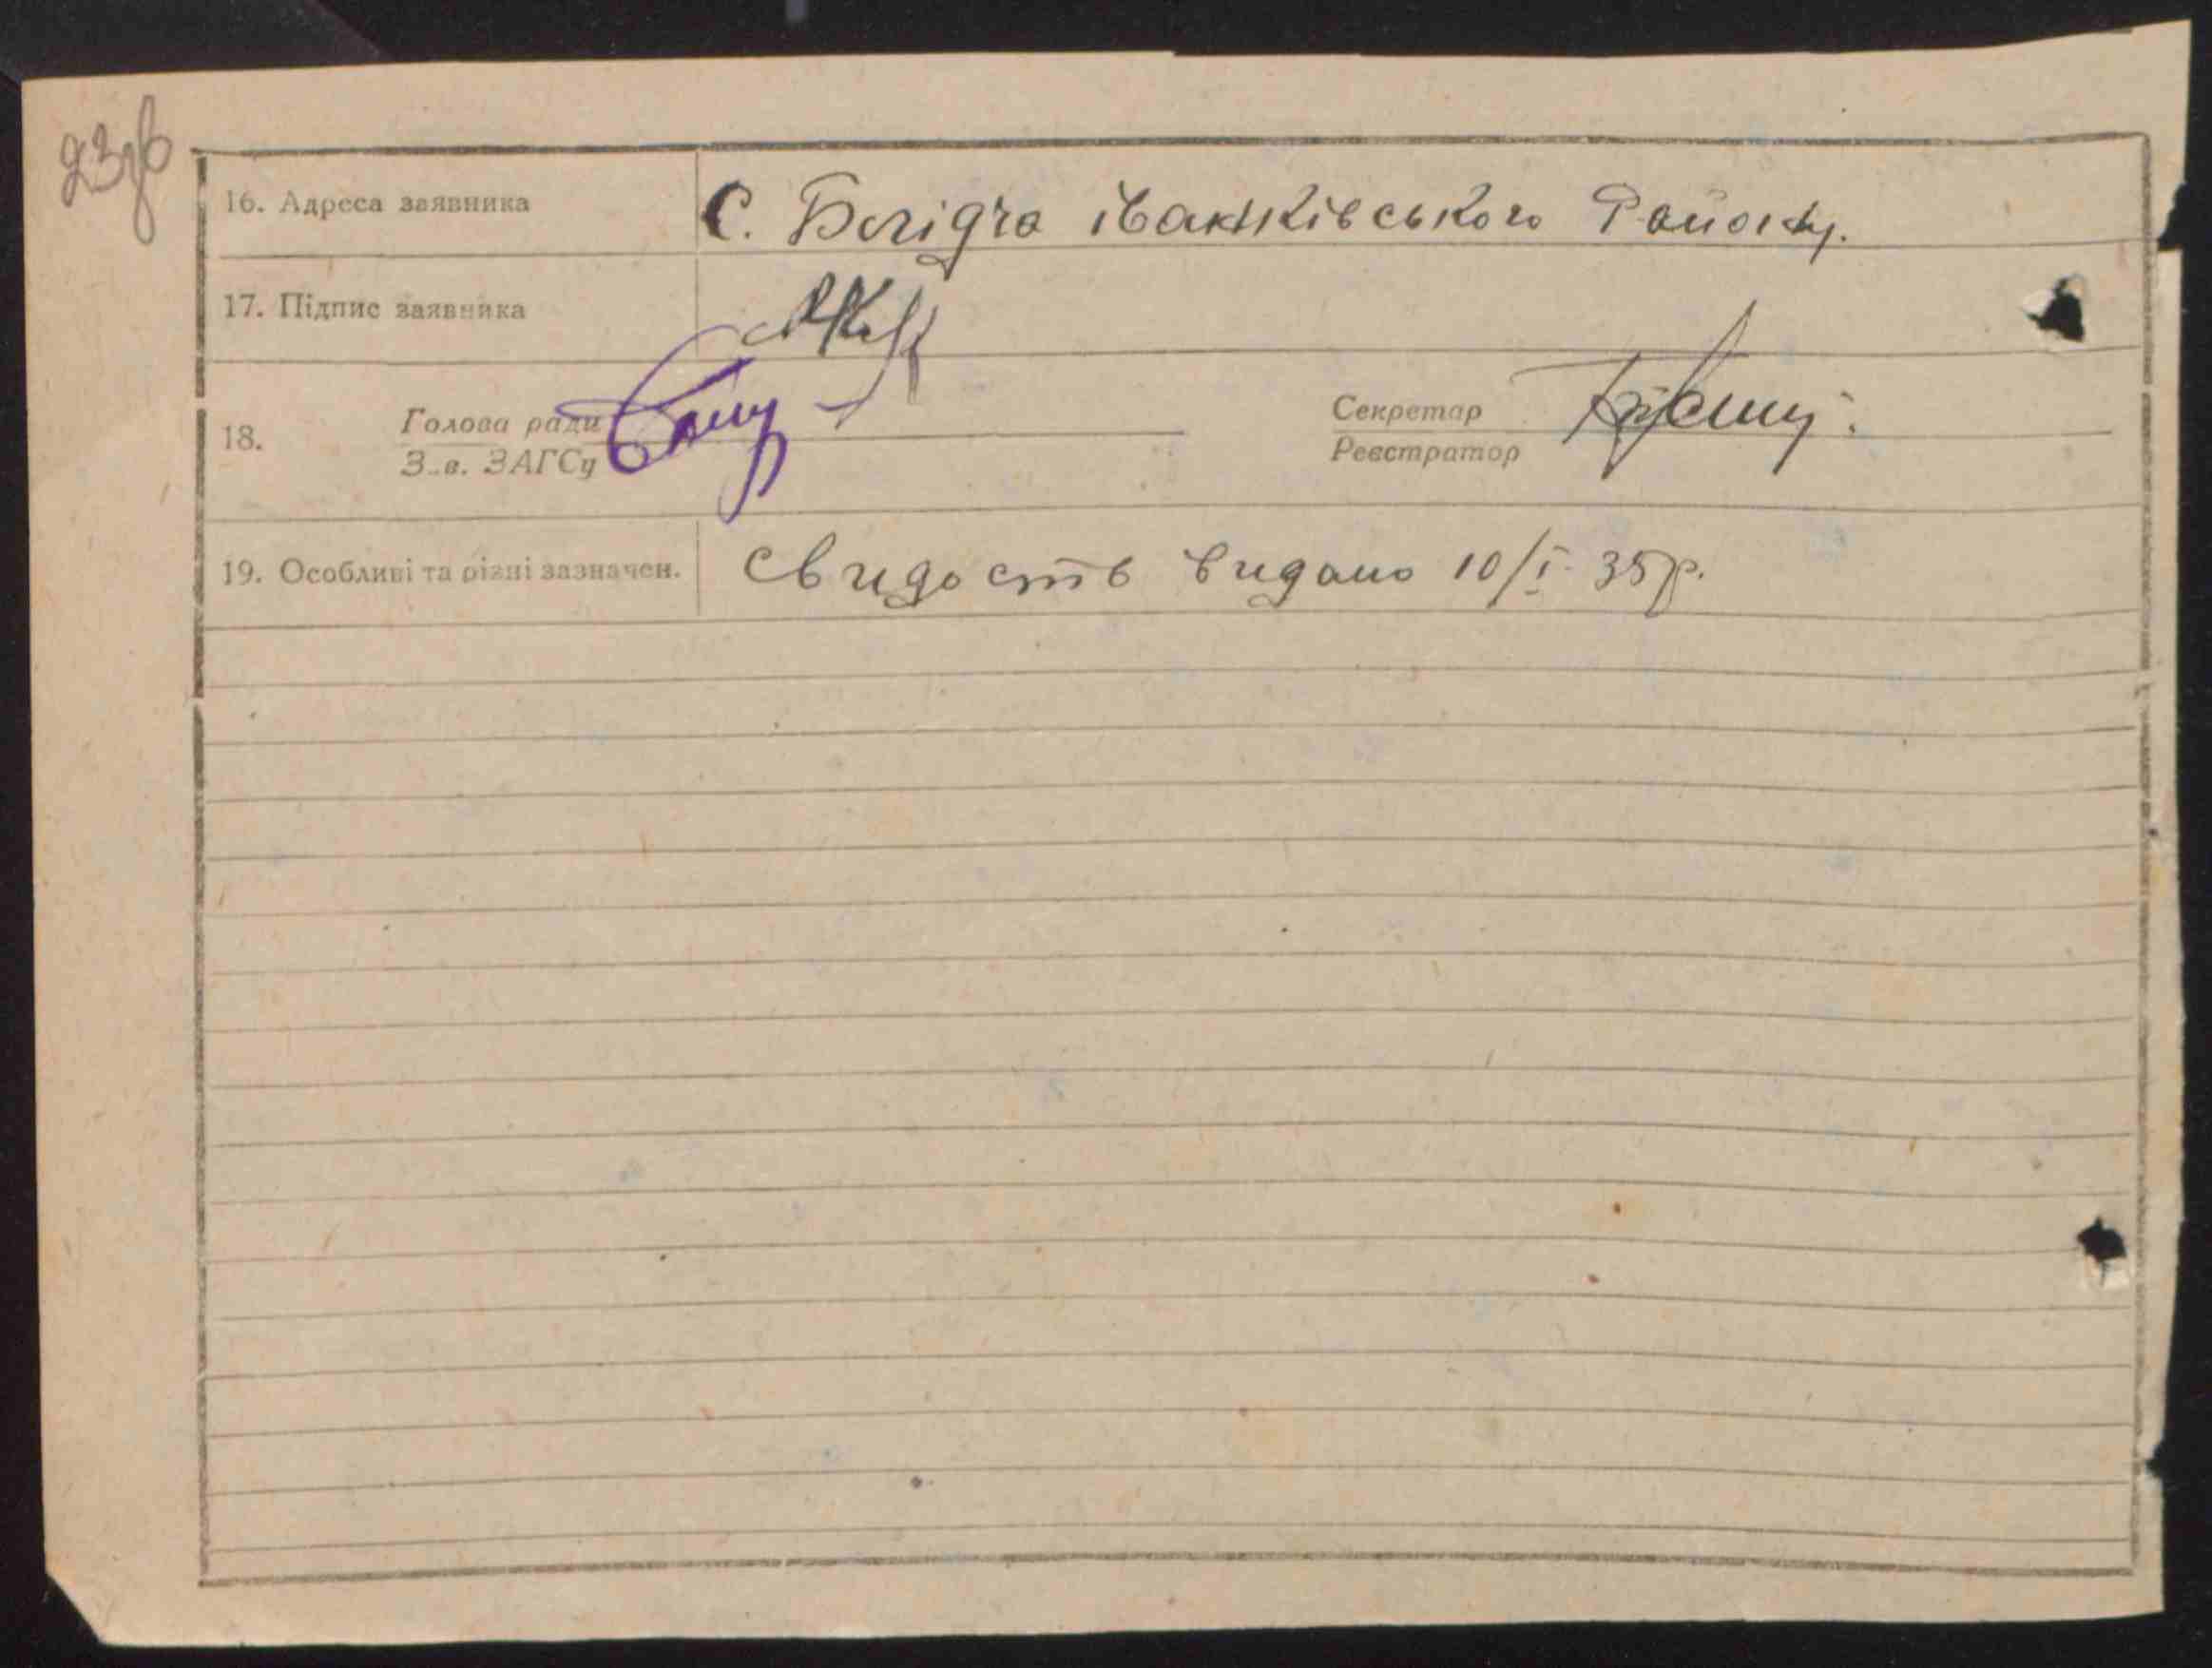 23зв
16. Адреса заявника С. Болідча іванківського Району.
17. Підпис заявника
18. Голова ради
З.в. ЗАГСу
Секретар
Реєстратор
19. Особливі та різні зазначен. Свидость видано 10/I 35р.